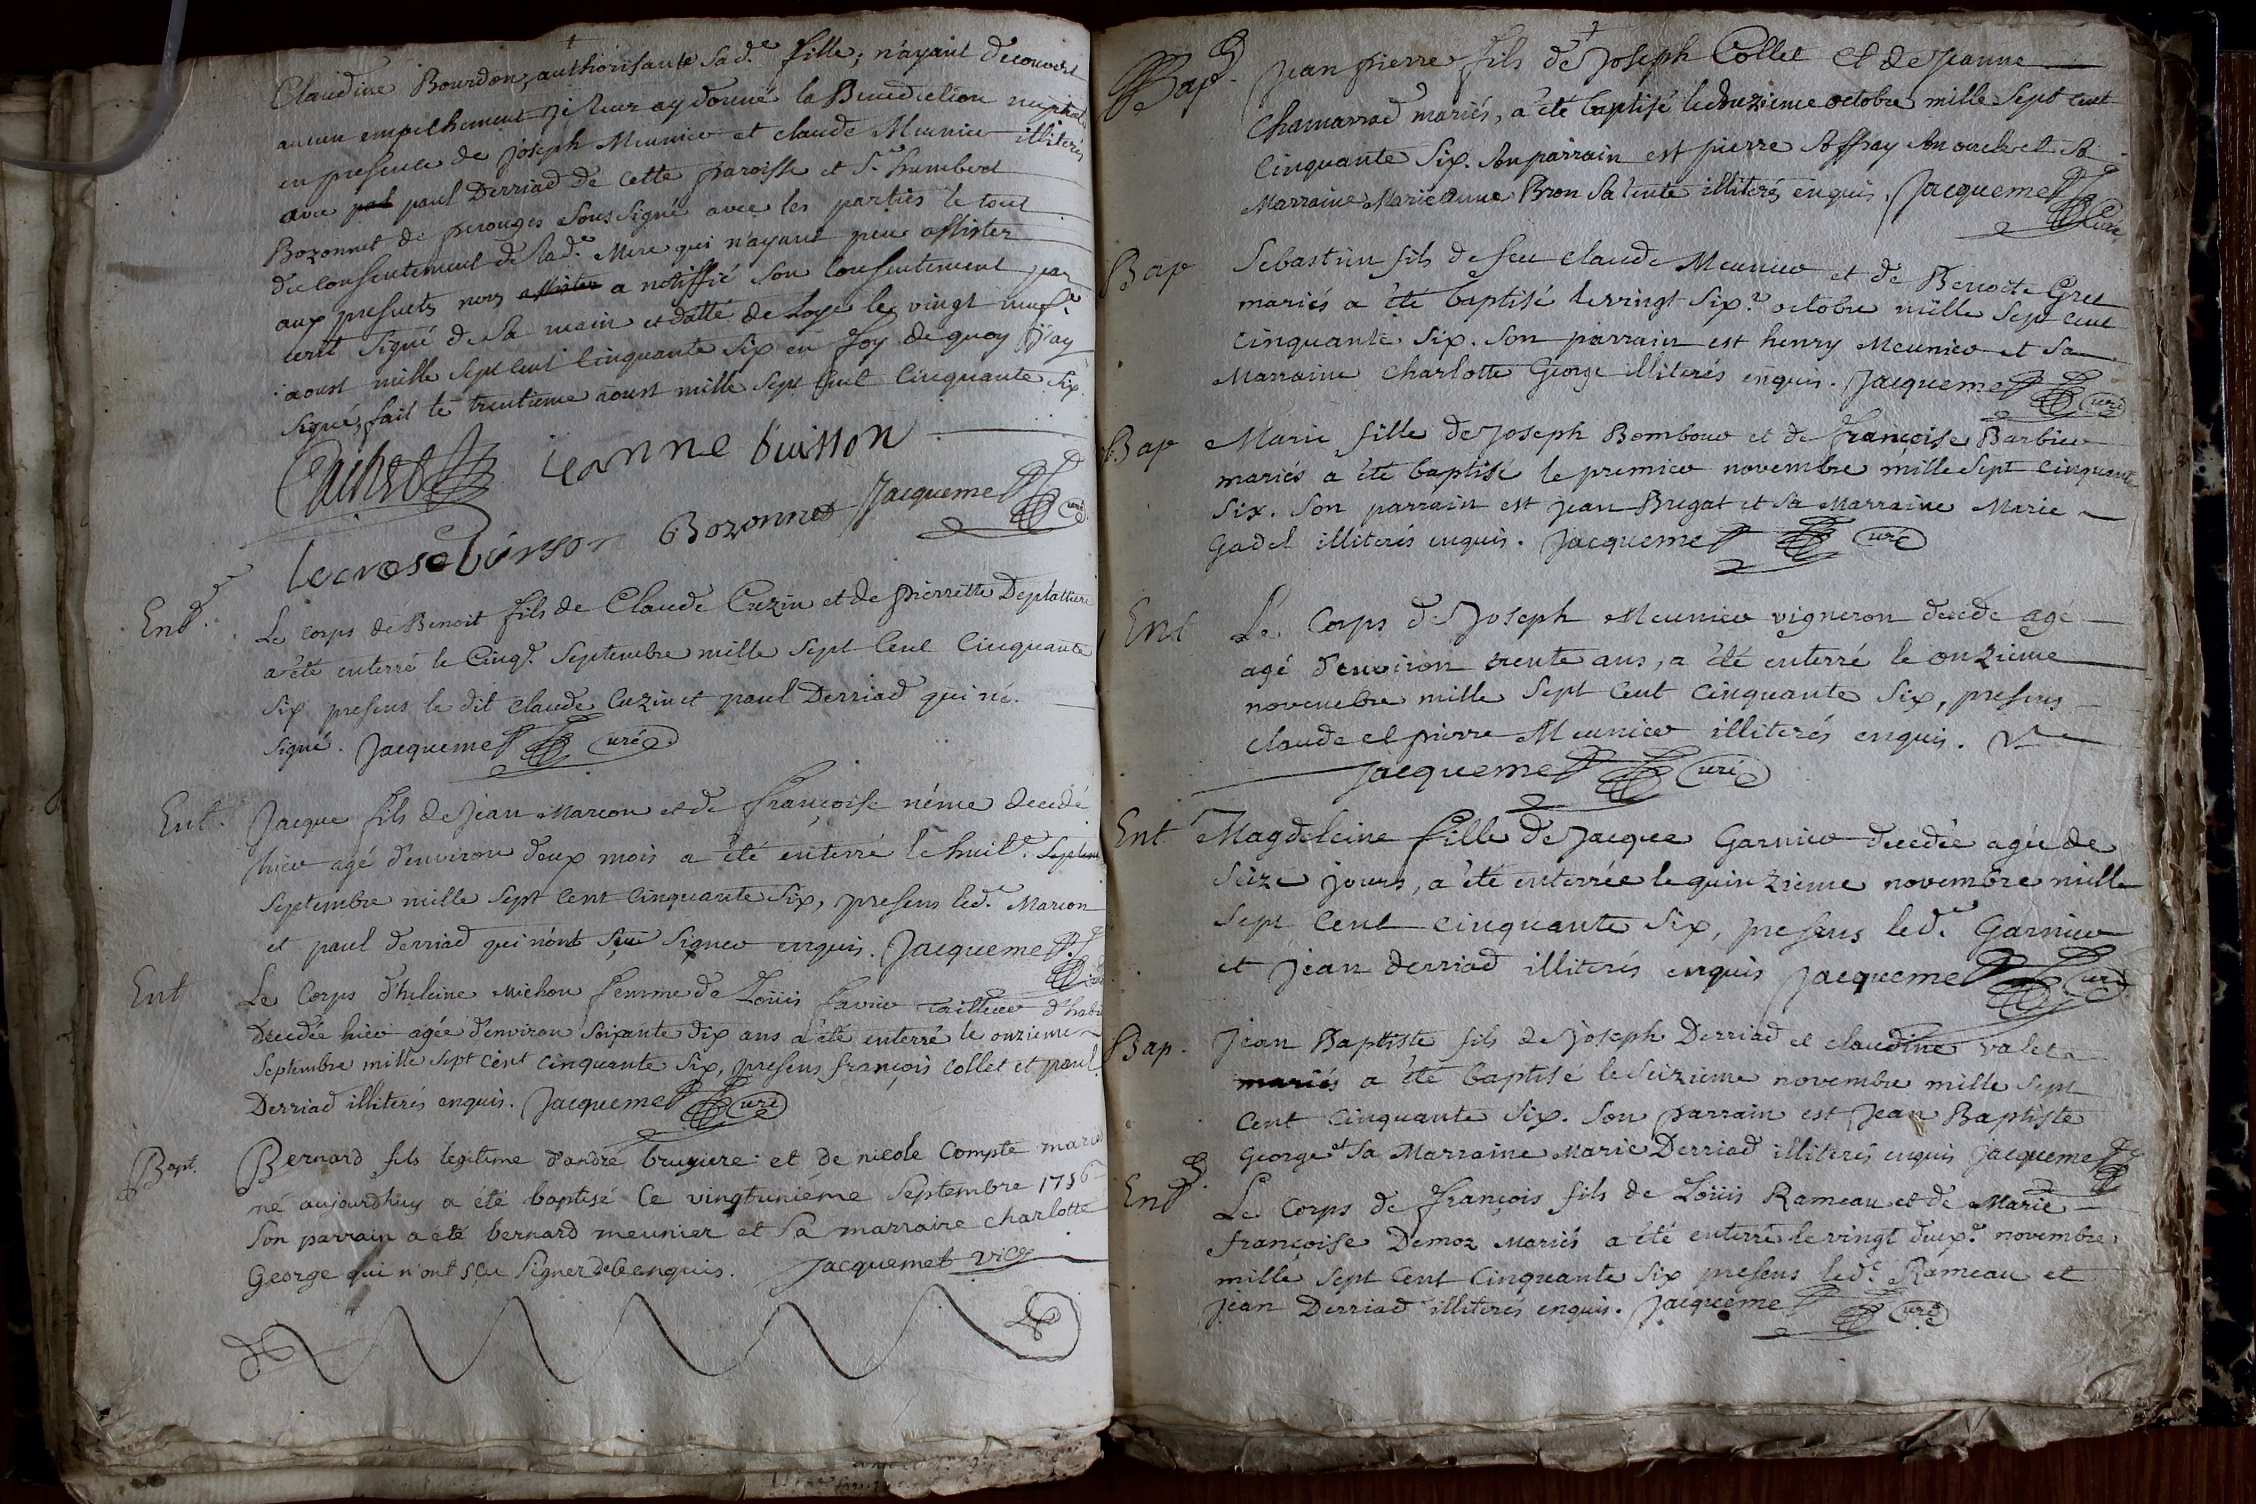 Claudine Bourdon, authorisante sad.e fille, n'ayant decouvert
aucun empechement je leur ay donné la Benediction nuptiale
en presence de joseph Meunier et claude Meunier illiterés
avec paul Derriad de cette paroisse et S.r humbert
Bozonnet de perouges sous signé avec les parties le tout
du consentement de lad.e Mere qui n'ayant peu assister
aux presents nous assister a notiffié son consentement par
ecrit signé de sa main et datté de Loye le vingt neuf.e
aoust mille sept cent cinquante six en foy de quoy j'ay
signé, fait le trentieme aoust mille sept cent cinquante six.
jeanne buisson
Bozonnet Jacquemet curé
Ent.
Le corps de Benoit fils de Claude Cuzin et de pierrette Deplatture
a été enterré le Cinq.e Septembre mille sept cent Cinquante
six presens le dit claude Cuzin et paul Derriad qui n'é.
signé. Jacquemet curé
Ent.
Jacque fils de jean Marcon et de françoise néme decedé
hier agé d'environ deux mois a été enterré le huit.e
Septembre mille sept cent cinquante six, presens led.t Marcon
et paul derriad qui n'ont sçu signer enquis. Jacquemet
Ent
Le Corps d'heleine Michon femme de Loüis favier tailleur d'habit
Decedée hier agée d'environ soixante dix ans a été enterré le onzieme
Septembre mille sept cent cinquante six, presens françois collet et paul
Derriad illiterés enquis. Jacquemet curé
Bapt.
Bernard fils legitime d'andré bruyiere et de nicole Compte
né aujourdhuy a été baptisé Ce vingtunième Septembre 1756
Son parrain a été bernard meunier et sa marraine charlotte
George qui n'ont sçu signer de ce enquis. Jacquemet vic.e
Bap.
Jean pierre fils de Joseph Collet et de jeanne
Chamarrad mariés, a été baptisé le douzieme octobre mille sept cent
Cinquante Six. son parrain est pierre Soffray son oncle et sa
Marraine Marie Anne Bron sa tente illiterés enquis. Jacquemet
Curé
Bap
Sebastien fils de feu claude Meunier et de Benoite Gret
mariés a été baptisé le vingt six.e octobre mille sept cent
cinquante six. son parrain est henry Meunier et sa
Marraine charlotte George illiterés enquis. Jacquemet curé
Bap
Marie fille de Joseph Bombour et de françoise Barbier
mariés a été baptisé le premier novembre mille sept cinquante
six. Son parrain est jean Bugat et sa Marraine Marie
Gadel illiterés enquis. Jacquemet curé
Ent
Le Corps de Joseph Meunier vigneron decede agé
agé d'environ trente ans, a été enterré le onzieme
novembre mille sept cent cinquante six, presens
claude et pierre Meunier illiterés enquis.
Jacquemet curé
Ent
Magdeleine fille de Jacque Garnier decedée agée de
seize jours, a été enterrée le quinzieme novembre mille
sept cent cinquante six, presens led.t Garnier
et jean derriad illiterés enquis Jacquemet curé
Bap.
Jean Baptiste fils de Joseph Derriad et claudine valet
mariés a été baptisé le seizieme novembre mille sept
cent cinquante six. son parrain est jean Baptiste
George et sa Marraine Marie Derriad illiterés enquis Jacquemet
Ent
Le Corps de françois fils de Loüis Rameau et de Marie
françoise Demoz mariés a été enterré le vingt deux.e novembre
mille sept cent cinquante six presens led.t Rameau et
jean Derriad illiterés enquis. Jacquemet curé